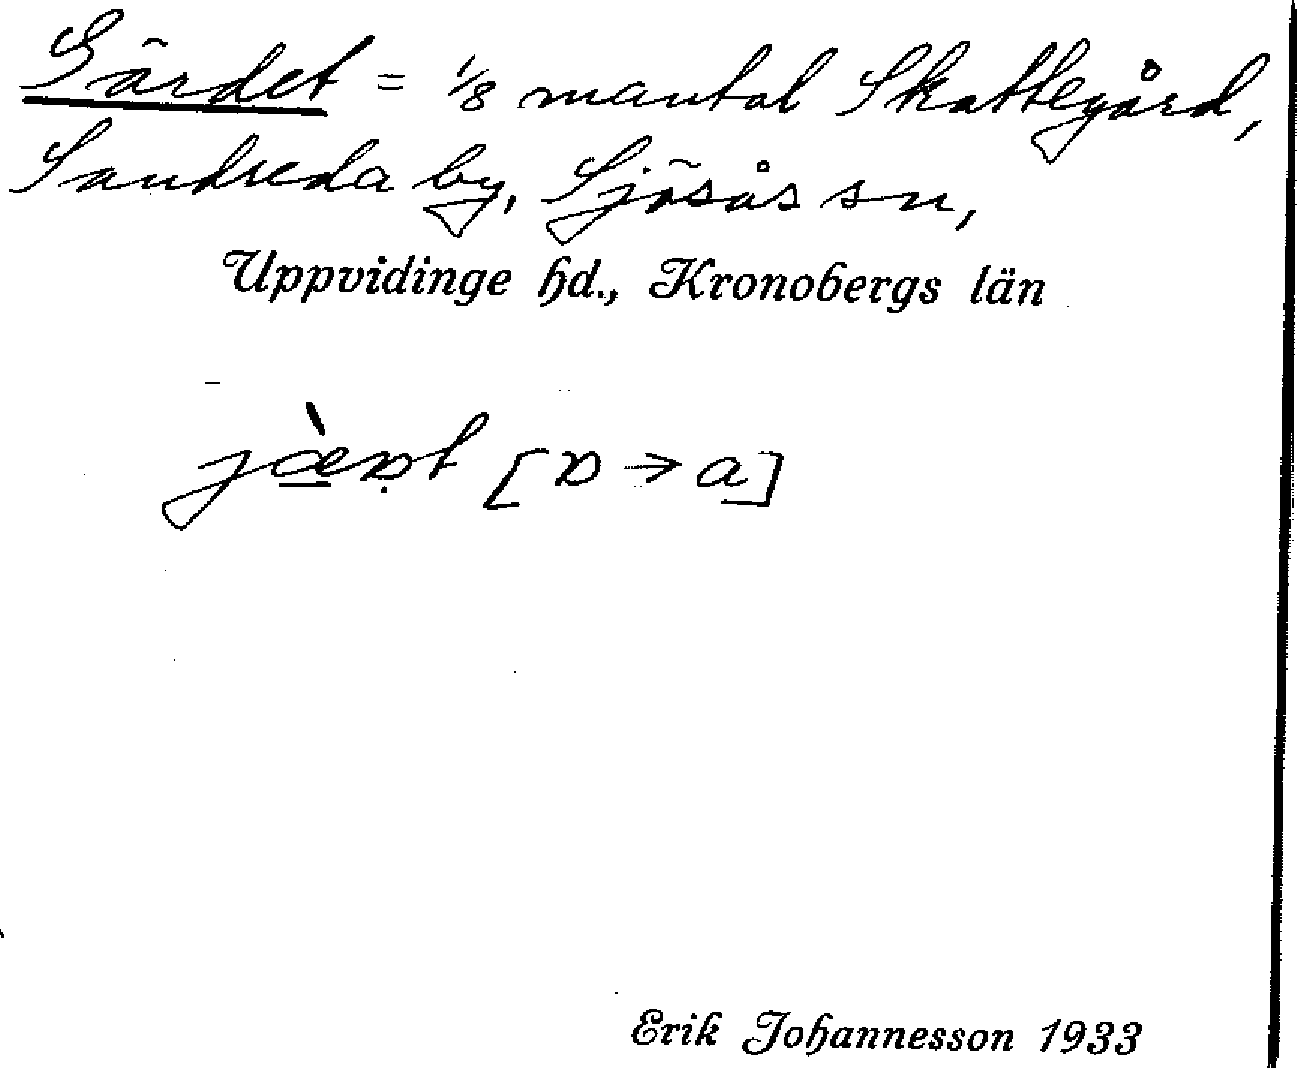 Gärdet = 1/8 mantal Skattegård,
Sandreda by, Sjösås sn,
Uppvidinge hd., Kronobergs län
jæ̀ɒt [ɒ → a]
Erik Johannesson 1933